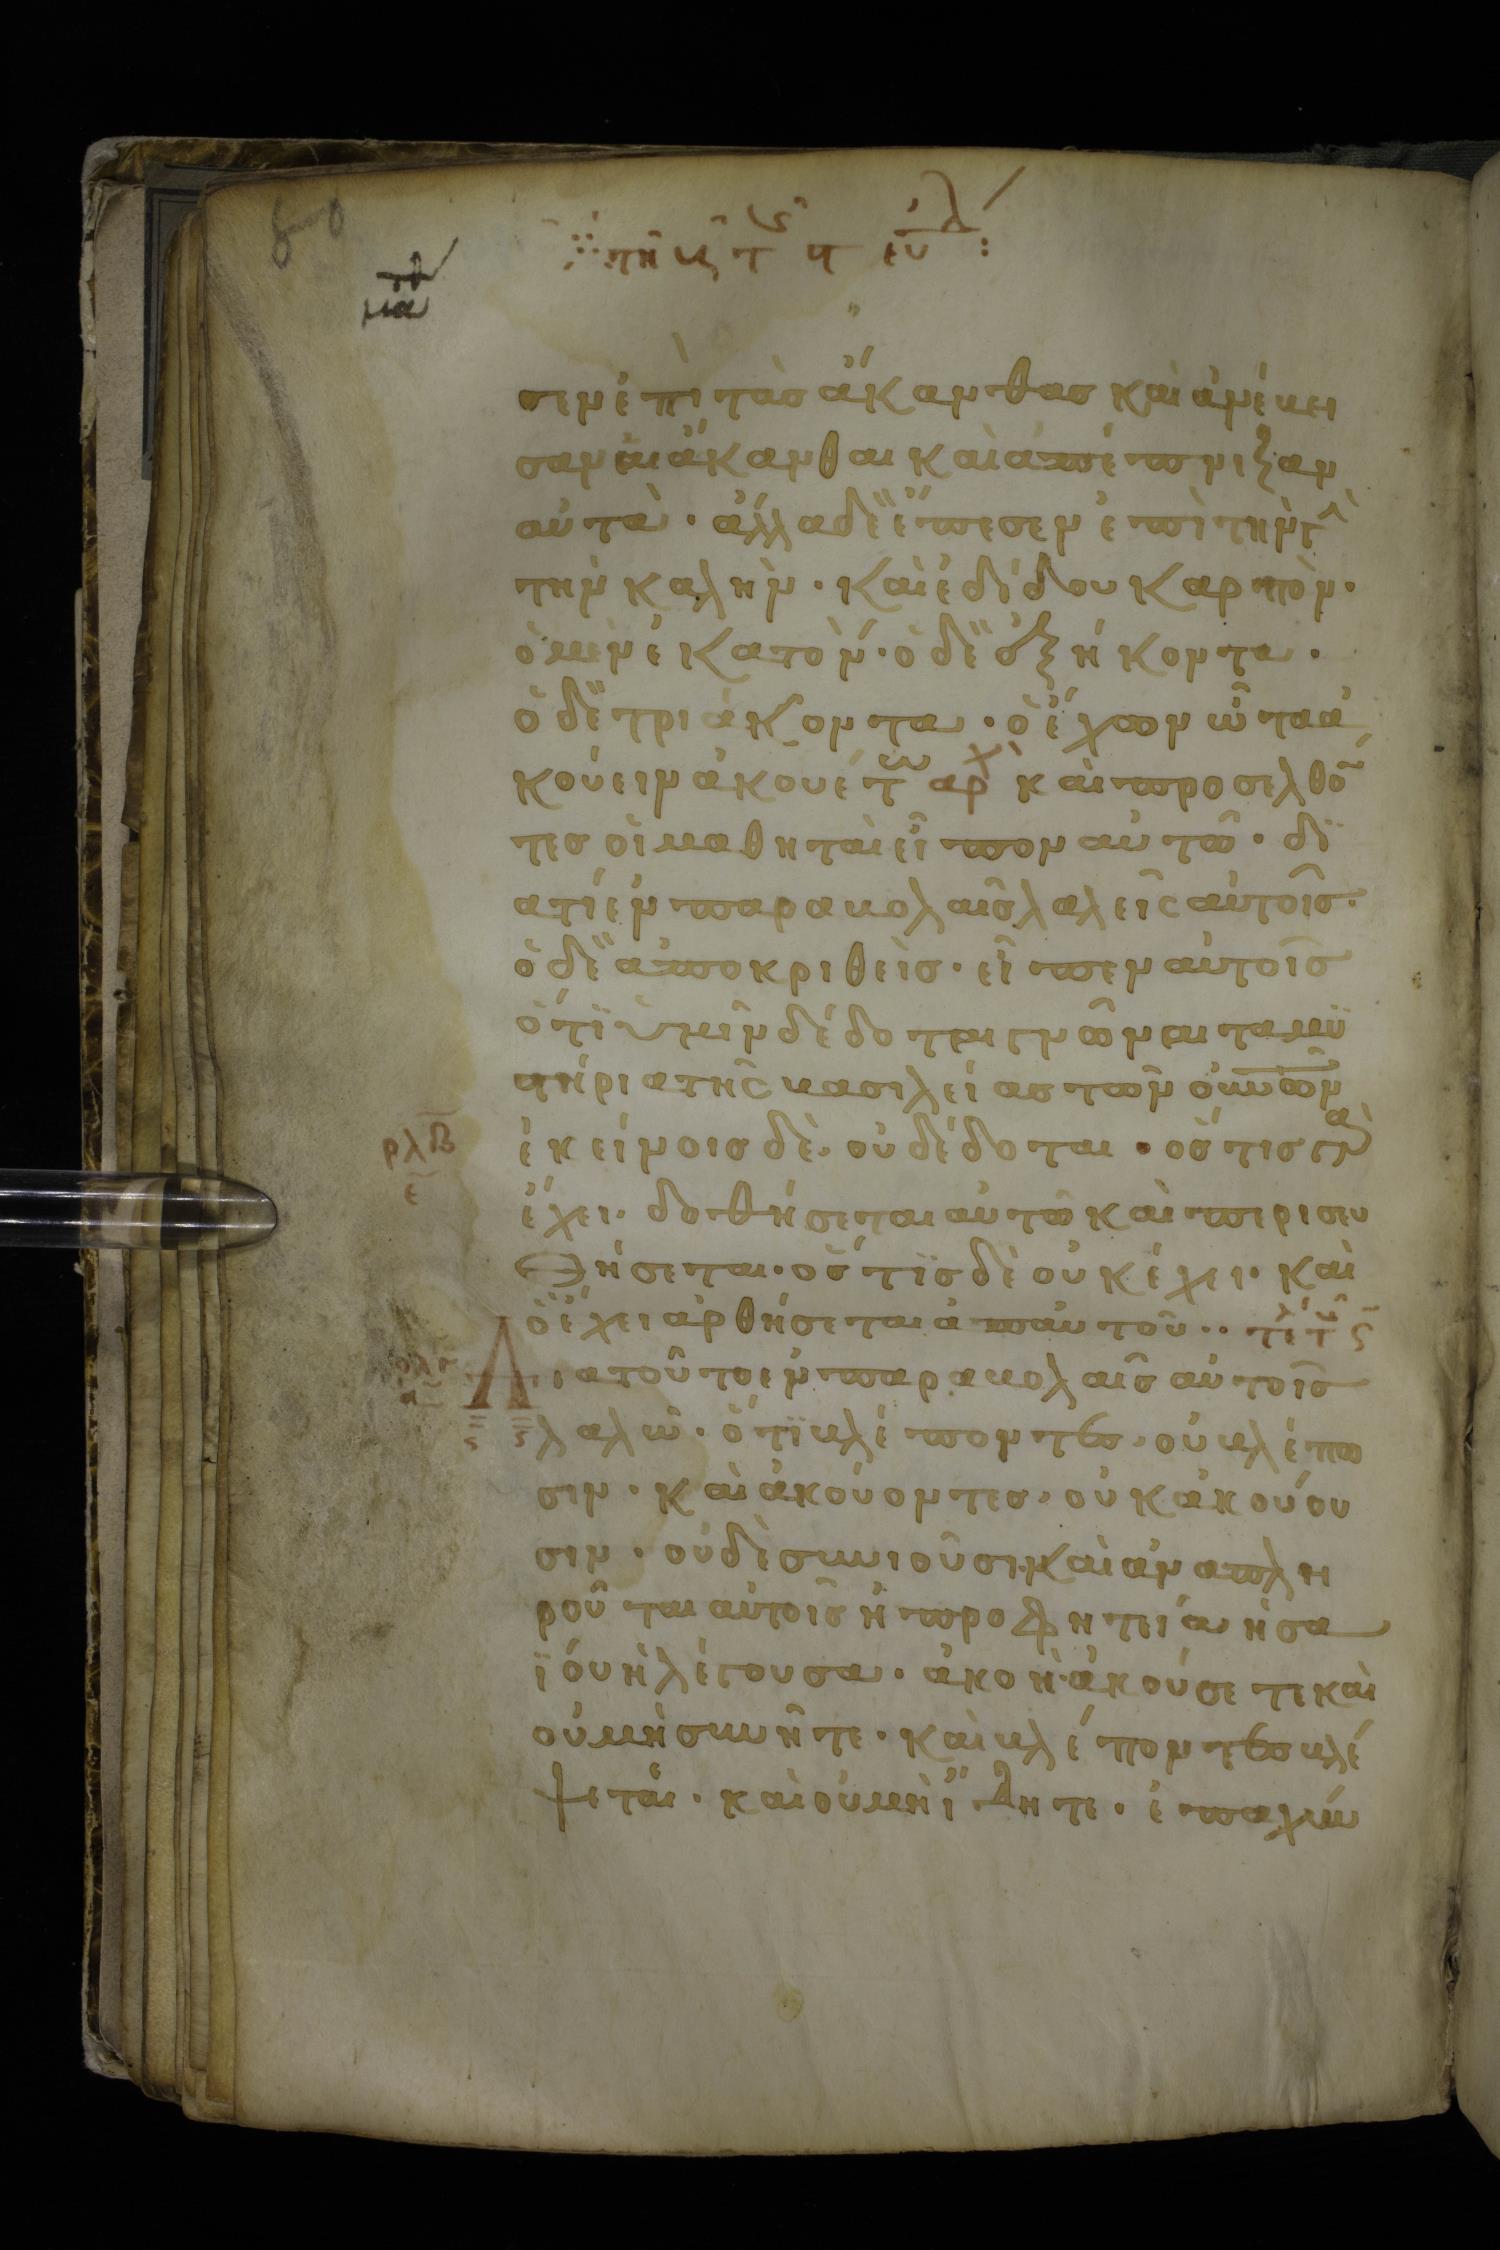 σεν ἐπὶ τὰσ ἄκανθασ καὶ ἀνέβη
σαν αἱ ἄκανθαι καὶ ἀπέπνιξαν
αὐτά · ἄλλα δὲ ἔπεσεν ἐπὶ τὴν γῆ
τὴν καλὴν · καὶ ἐδίδου καρπὸν ·
ὁ μὲν ἑκατὸν · ὁ δὲ ἑξήκοντα ·
ὁ δὲ τριάκοντα · ὁ ἔχων ὦτα ἀ
κούειν ἀκουέτω αρχ καὶ προσελθό
τεσ οἱ μαθηταὶ εἶπον αὐτῶ · δι
ατί ἐν παραβολαῖσ λαλεῖς αὐτοῖσ ·
ὁ δὲ ἀποκριθεὶσ · εἶπεν αὐτοῖσ
ὅτι ὑμῖν δέδοται γνῶναι τα μυ
στήρια τῆς βασιλείασ τῶν οὐνῶν
ἐκείνοισ δὲ οὐ δέδοται · ὅστισ γὰρ
ρλβ
ε
ἔχει · δοθήσεται αὐτῶ καὶ περισευ
θήσεται · ὅστισ δὲ οὐκ ἔχει · καὶ
ὃ ἔχει ἀρθήσεται ἀπ αὐτοῦ ··
Διατοῦτο ἐν παραβολαῖσ αὐτοῖσ
λαλῶ · ὅτι βλέποντεσ · οὐ βλέπω
σιν · καὶ ἀκούοντεσ · οὐκ ἀκούου
σιν · οὐδὲ συνιοῦσι · καὶ ἀναπλη
ροῦται αὐτοῖσ ἡ προφητεία ἡσα
ϊου ἡ λέγουσα · ἀκοῆ ἀκούσετε καὶ
οὐ μὴ συνῆτε · καὶ βλέποντεσ βλέ
ψεται · καὶ οὐ μὴ ἴδητε · ἐπαχύν